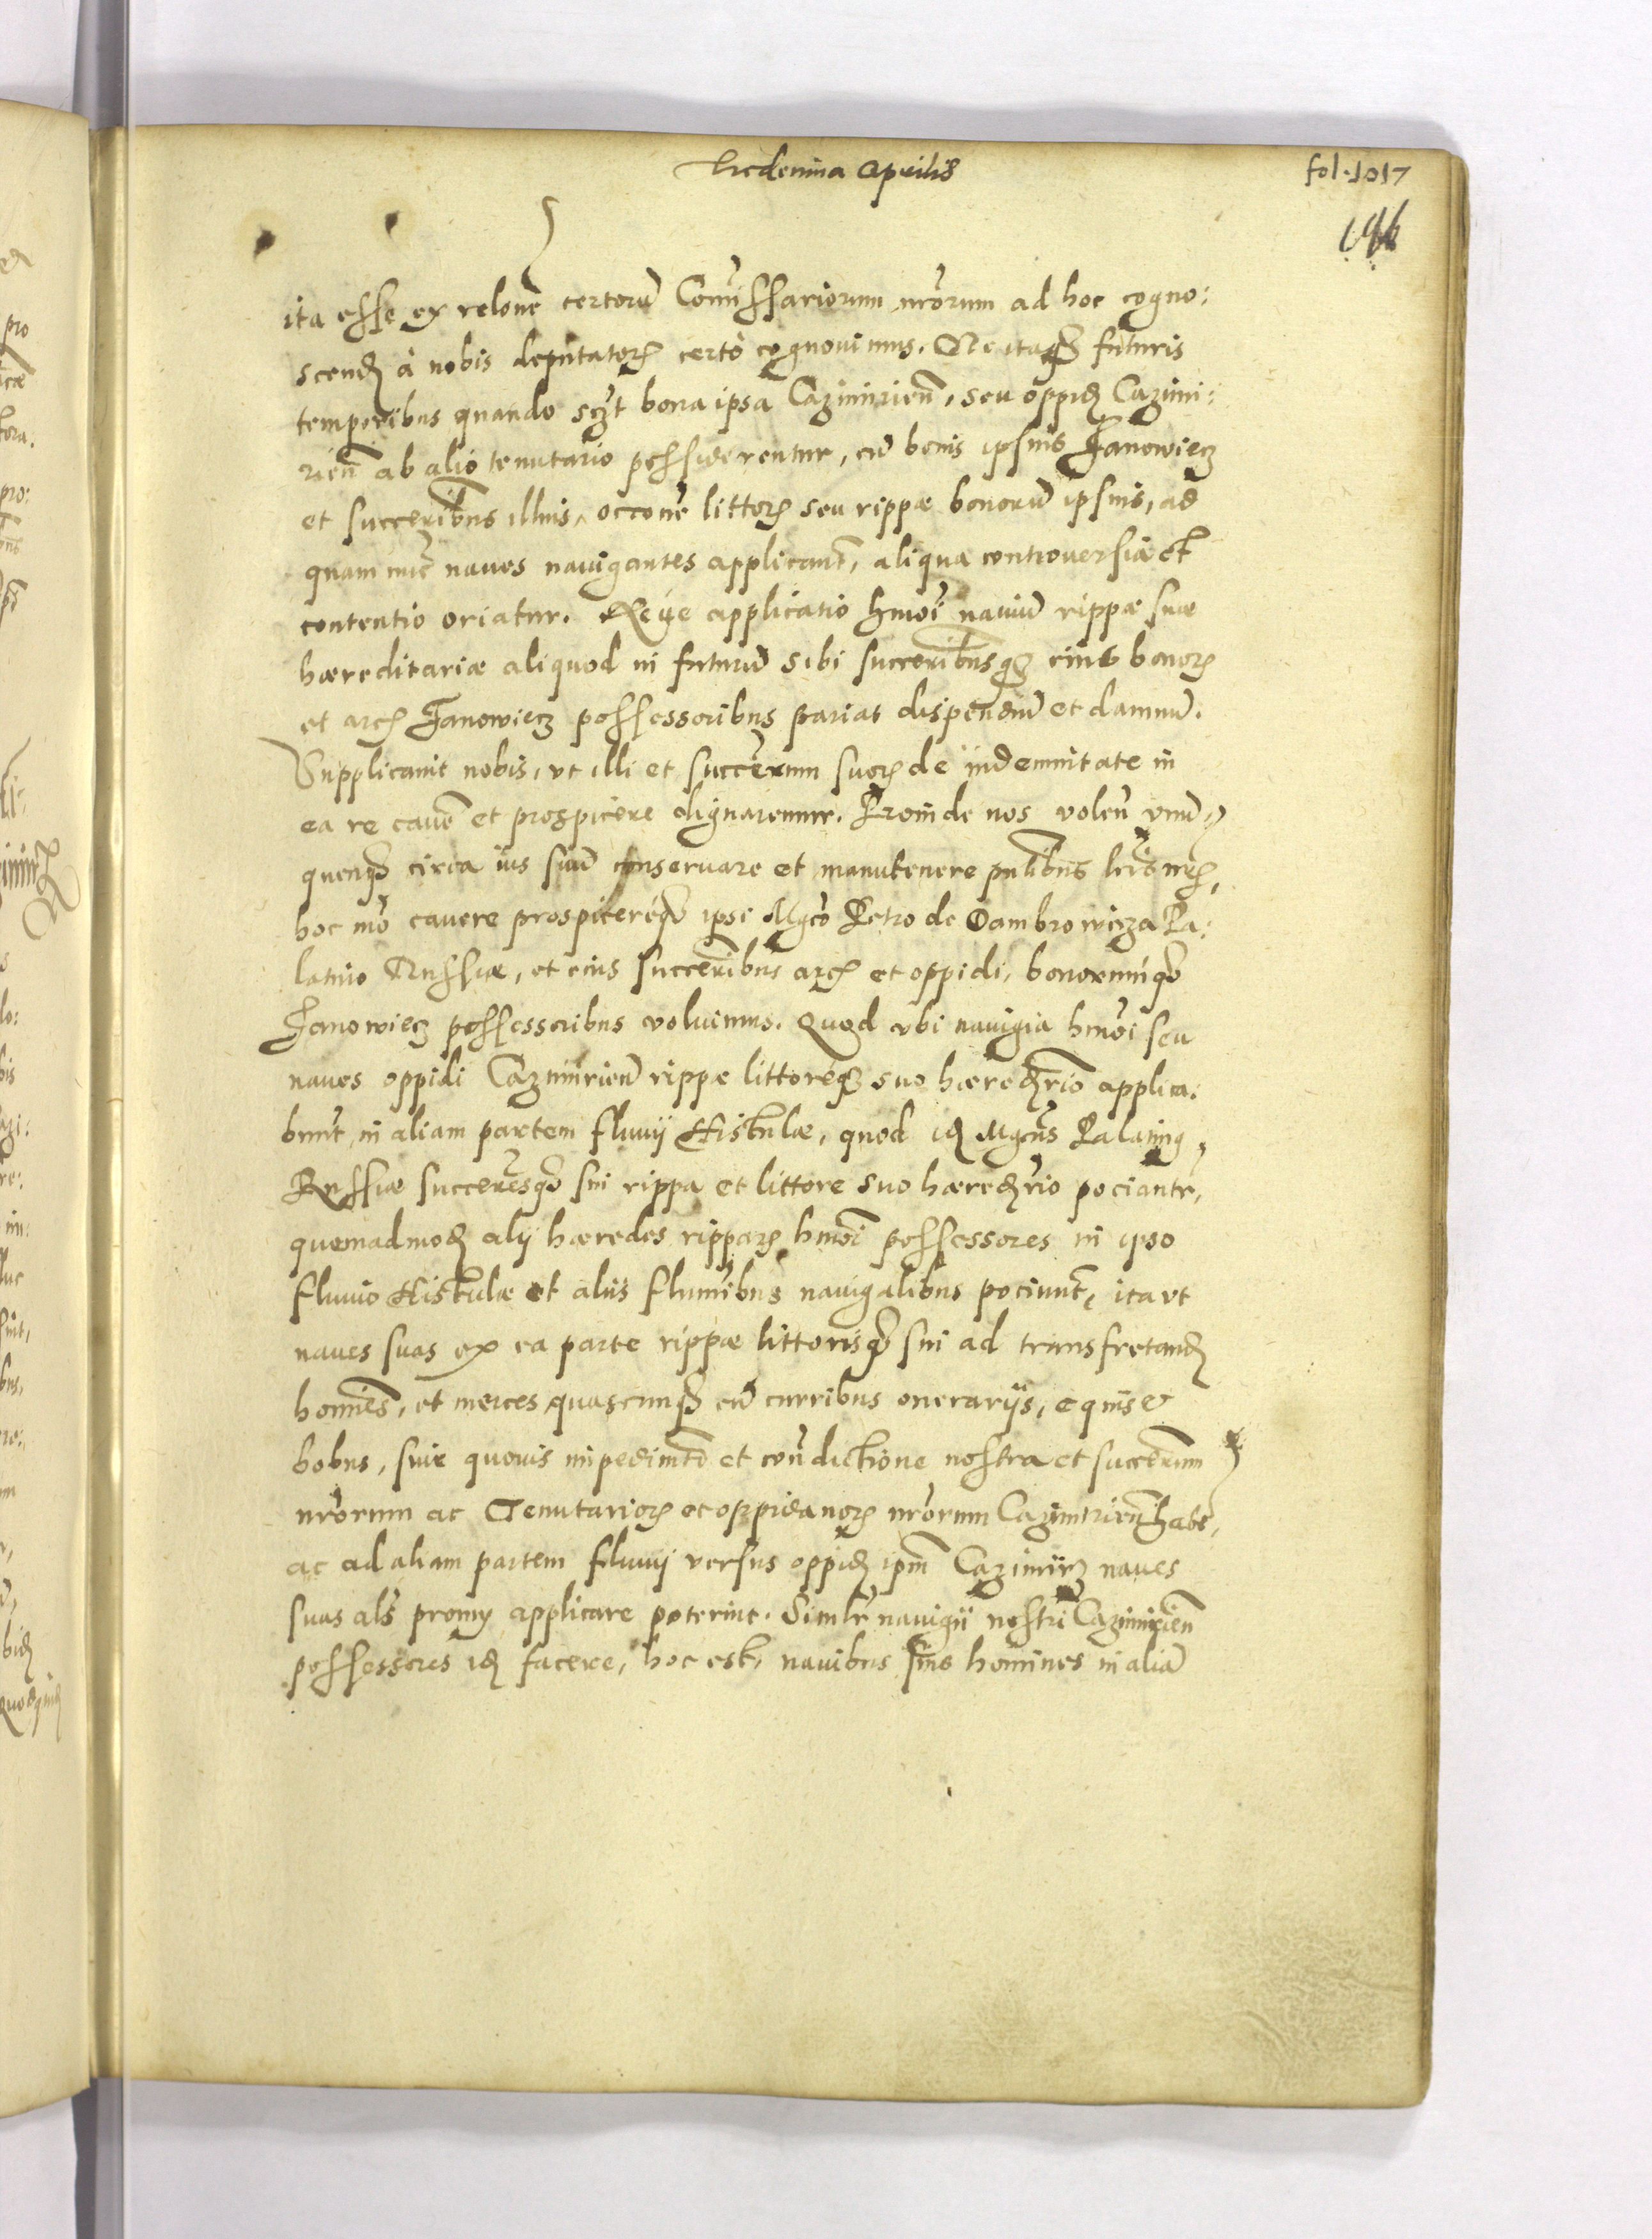 Tredecima Aprilis
fol. 1017
196
ita esse ex relone certorū Comissariorum nrorum ad hoc cogno:
scend à nobis deputator certò cognovimus. Ne itaq futuris
temporibus quando sczt bona ipsa Cazimirien, seu oppid Cazimi:
rien ab alio tenutario possiderentur, cū bonis ipsius Janowiecz
et succeribus illius, occone littor seu rippæ bonorū ipsius, ad
quam nūc naves navigantes applicant, aliqua controversia et
contentio oriatur. Neve applicatio hmoi naviū rippæ suæ
hæreditariæ aliquod in futurū sibi succeribusq eius bonor
et arc Janowiecz possessoribus pariat dispendiū et damnū.
Supplicavit nobis, ut illi et succerum suor de indemnitate in
ea re cavē et prospicere dignaremur. Proinde nos volen unū
quenq circa ius suū conservare et manutenere pntibus lris nris,
hoc mō cavere prospicereq ipsi Mgco Petro de Dambrowicza Pa:
latino Russiæ, et eius succeribus arc et oppidi, bonorumq
Janowiecz possessoribus voluimus. Quod ubi navigia hmoi seu
naves oppidi Cazimirien rippæ littoriq suo hæredrio applica:
bunt in aliam partem fluvij Histulæ, quod id Mgcus Palatinq
Russiæ succeresq sui rippa et littore suo hæredrio pociantr,
quemadmod alij hæredes rippar hmoi possessores in ipso
fluvio Histulæ et aliis fluminibus navigalibus pociunt, ita ut
naves suas ex ea parte rippæ littorisq sui ad transfretand
homines, et merces quascunq cū curribus onerarijs, equis et
bobus, sine quovis impedimto et condictione nostra et succerum
nrorum ac Tenutarior et oppidanor nrorum Cazimirien habe,
ac ad aliam partem fluvij versus oppid ipm Cazimirz naves
suas als promy applicare poterint. Similr navigii nostri Cazimirien
possessores id facere, hoc est, navibus suis homines in aliā